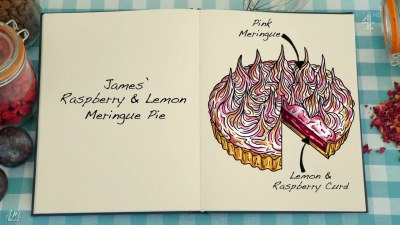 James'
Raspberry & Lemon
Meringue Pie
Pink
Meringue
Lemon &
Raspberry Curd
4